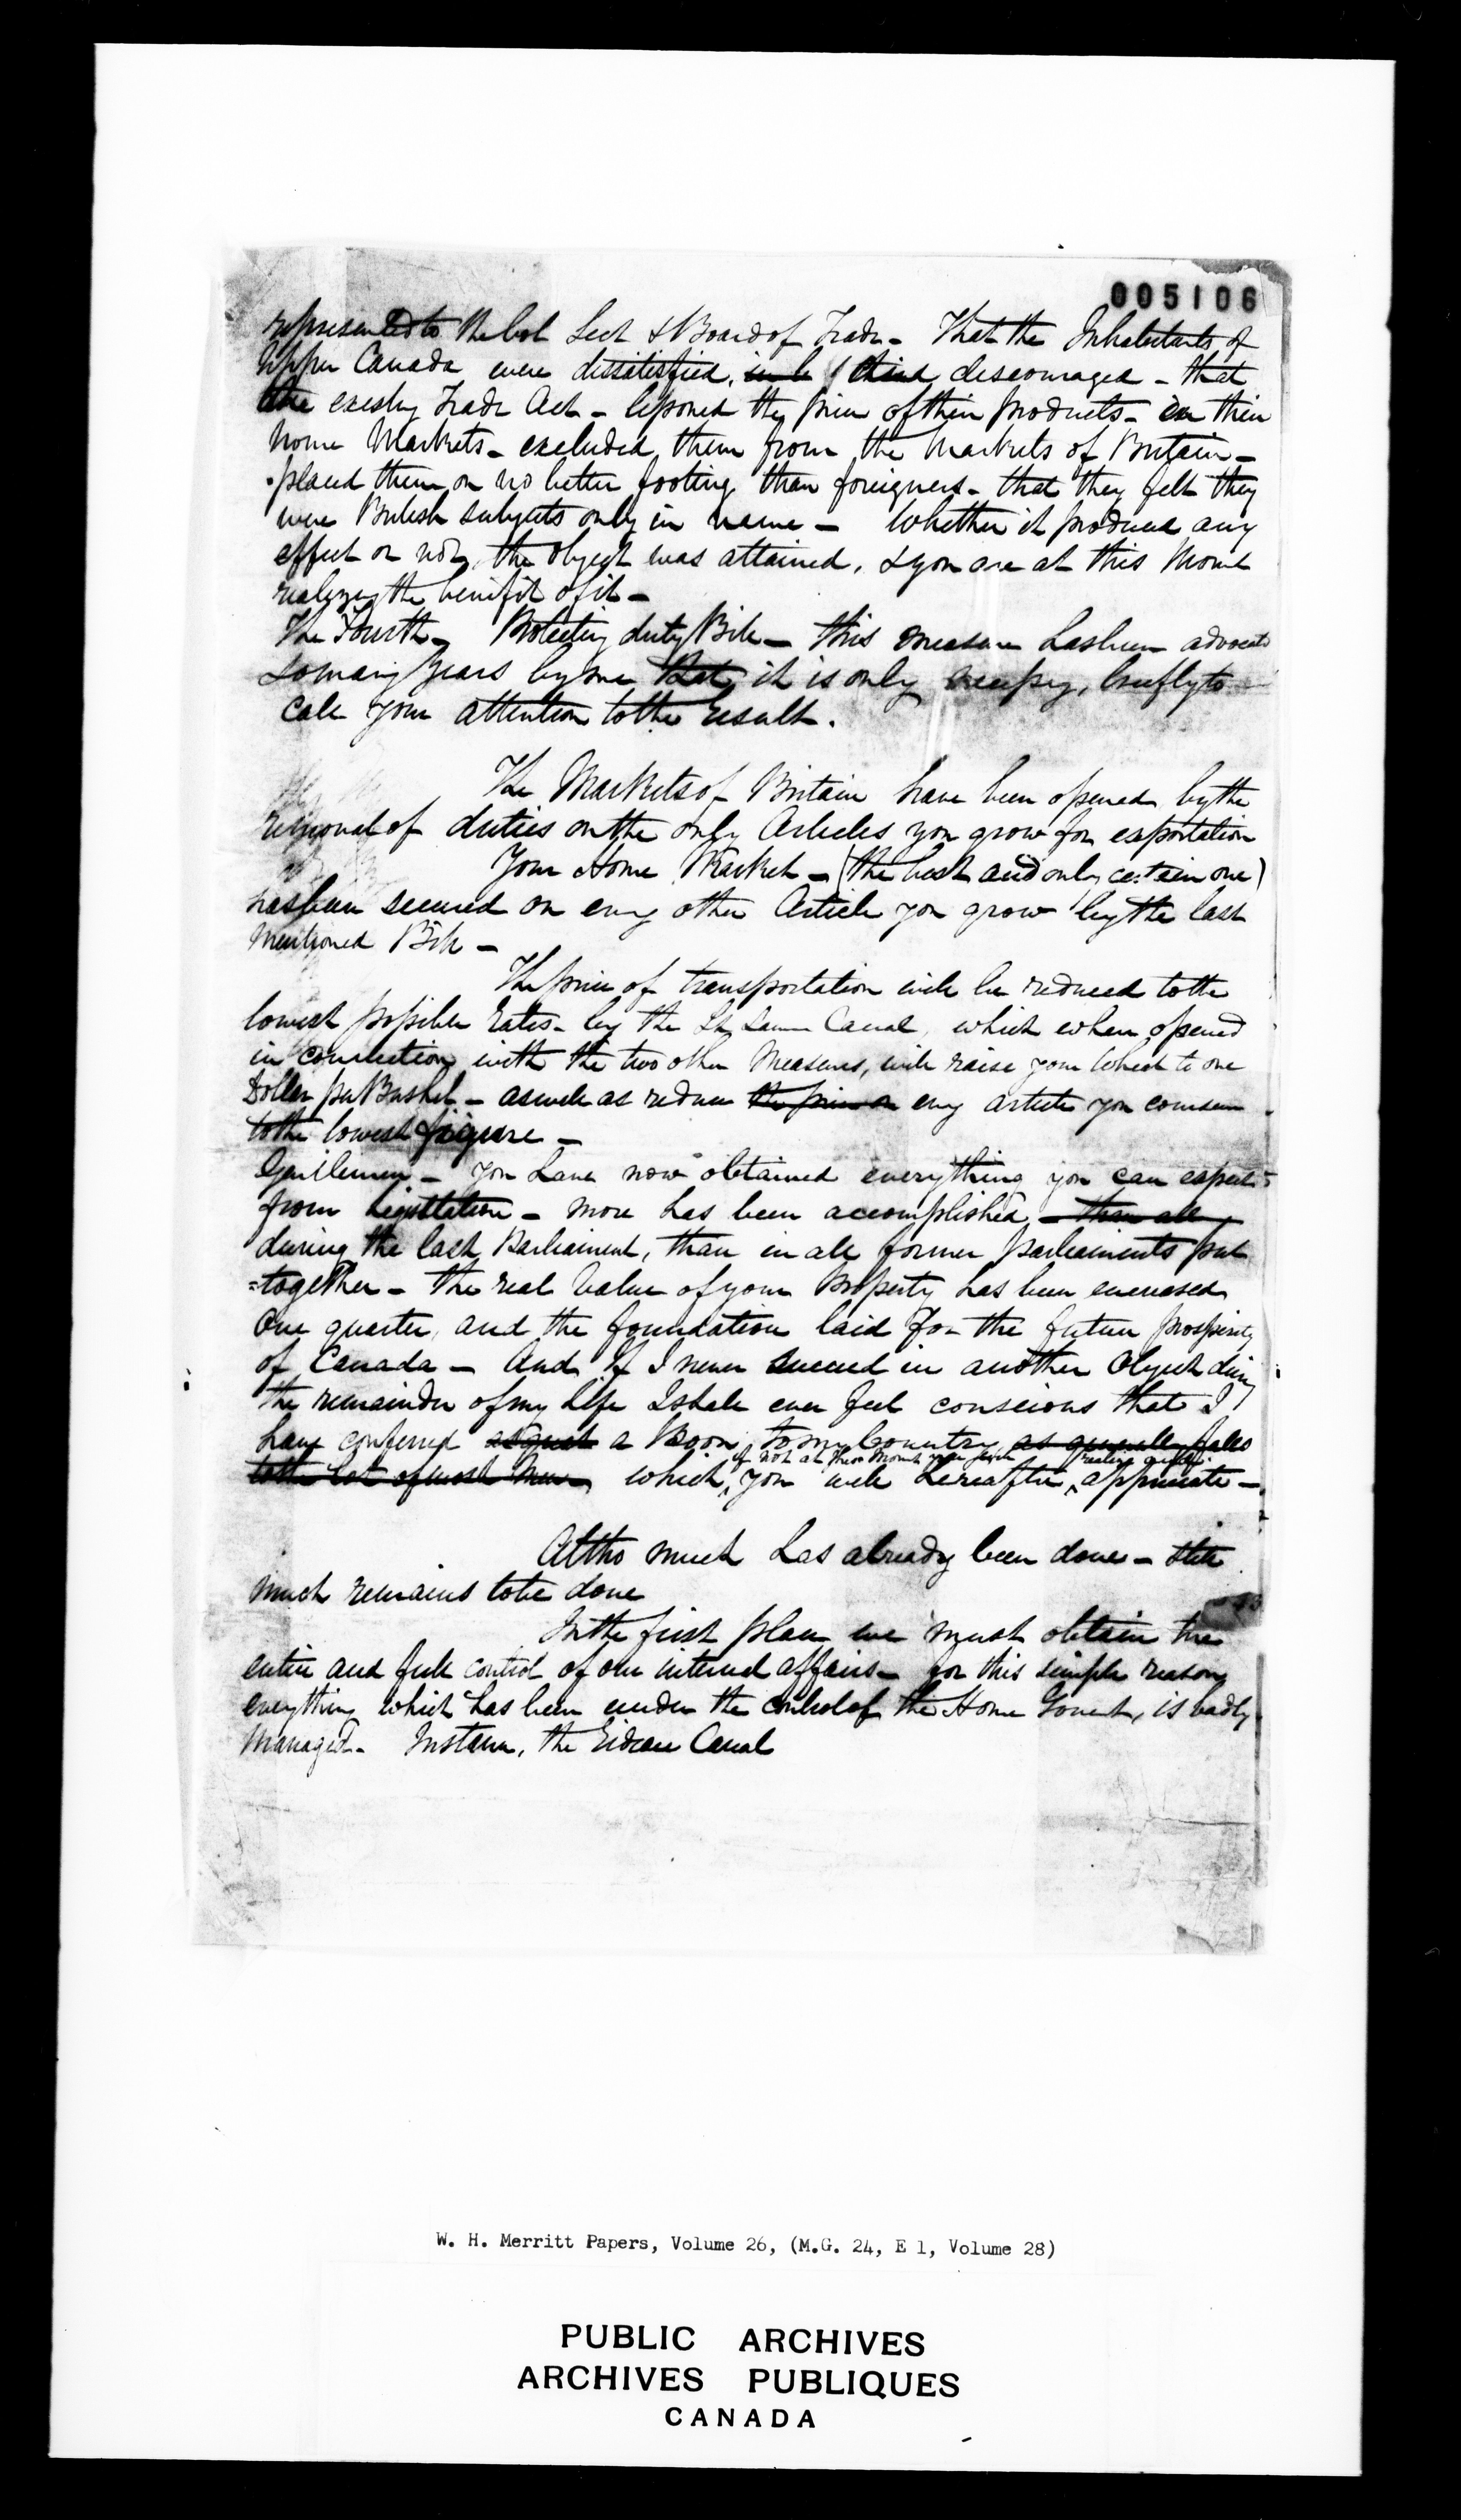 005106
represented to the Col Sect & Board of Trade - That the Inhabitants of
Upper Canada were dissatisfied, discouraged - that
the existing Trade Act - the price of their products - in their
home Markets - excluded them from the Markets of Britain -
placed them on no better footing than foreigners - that they felt they
were British subjects only in name - Whether it produced any
effect or not, the object was attained, & you are at this Momt
realizing the benifit of it -
The Fourth - Protecting duty Bill - this measure has been advocated
so many years by me that it is only necessy, briefly to
call your attention to the result.
The Markets of Britain have been opened by the
removal of duties on the only Articles you grow for exportation
Your Home Market - (the best and only certain one)
has been secured on every other Article you grow by the last
Mentioned Bill -
The price of transportation will be reduced to the
lowest possible rates - by the St Lawrence Canal, which when opened
in connection with the two other Measures, will raise your Wheat to one
Dollar per Bushel - as well as reduce the price on every article you consume
to the lowest figure -
Gentlemen - You have now obtained everything you can expect
from Legislation - more has been accomplished - than all
during the last Parliament, than in all former parliaments put
=together - The real Value of your Property has been encreased
One quarter, and the foundation laid for the future prosperity
of Canada - And If I never succeed in another Object during
the remainder of my life I shall ever feel conscious that I
have conferred as great a Boon to my Country as generally falls
to the lot of most Men
if not at this Momt you
which, you will hereafter, appreciate -
Altho much has already been done - still
much remains to be done
In the first place we must obtain the
entire and full control of our internal affairs - for this simple reason
everything which has been under the control of the Home Govent, is badly
Managed - Instance, the Rideau Canal
W. H. Merritt Papers, Volume 26, (M.G. 24, E 1, Volume 28)
PUBLIC ARCHIVES
ARCHIVES PUBLIQUES
CANADA